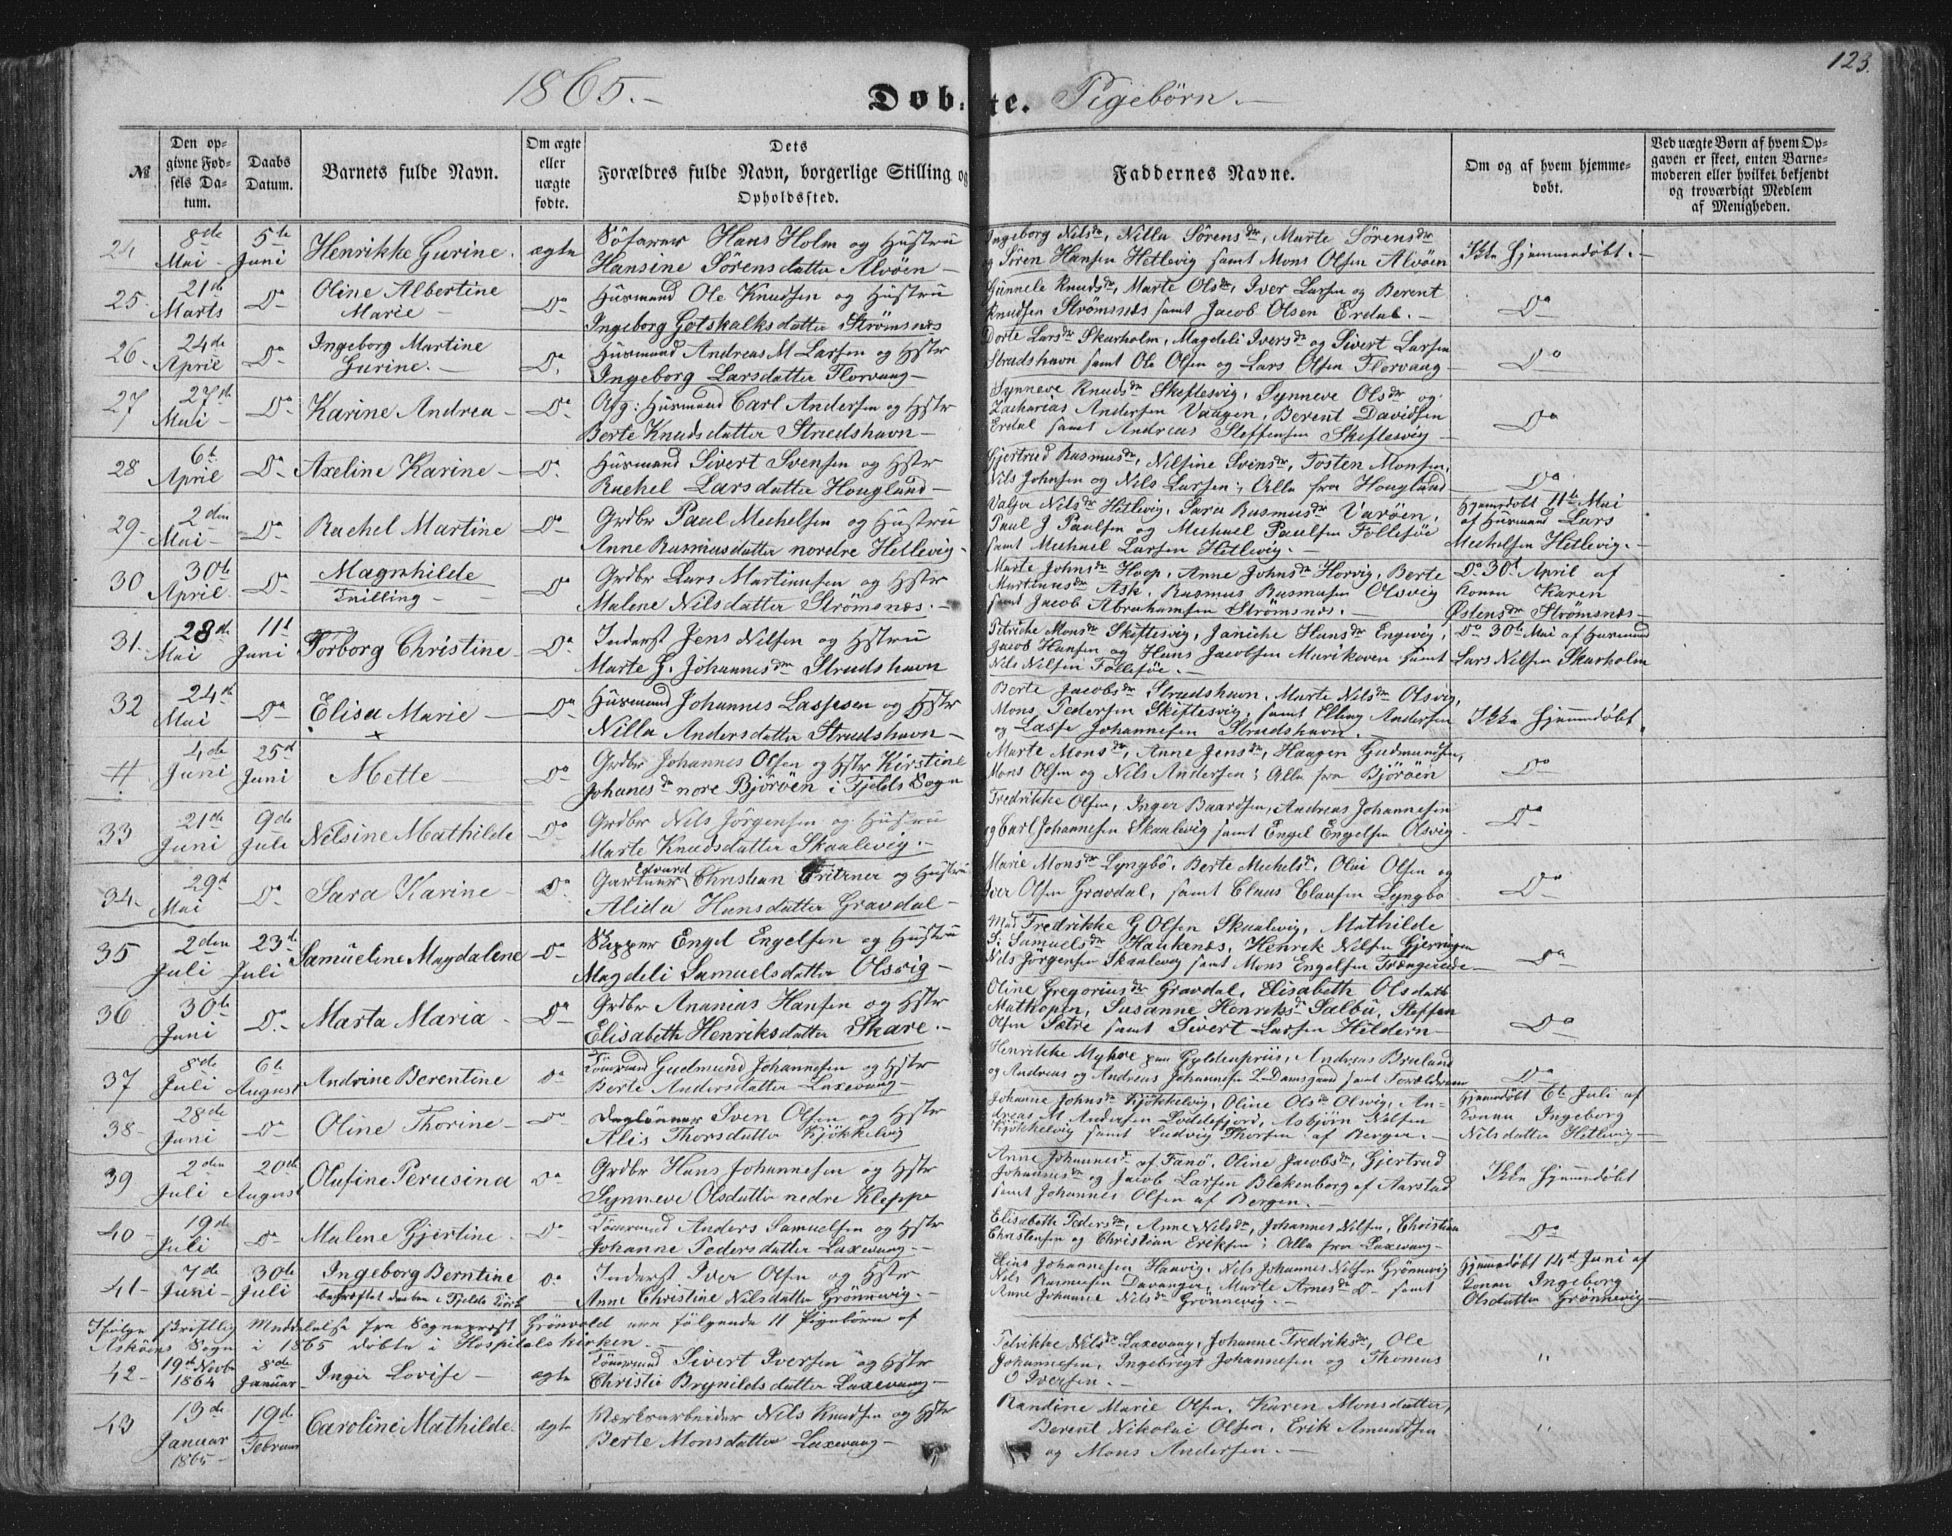 123.
1865.- Døbte. Pigebørn.-
№ | Den opgivne Fødsels Datum. | Daabs Datum. | Barnets fulde Navn. | Om ægte eller uægte fødte. | Dets Forældres fulde Navn, borgerlige Stilling og Opholdssted. | Faddernes Navne. | Om og af hvem hjemmedøbt. | Ved uægte Børn af hvem Opgaven er skeet, enten Barnemoderen eller hvilket bekjendt og troværdigt Medlem af Menigheden.
24 8de Mai 5te Juni Henrikke Gurine. ægte
Søfarer Hans Holm og Hustru
Hansine Sørensdatter Alvøen
Ingeborg Nilsdr, Nilla Sørensdr, Marte Sørensdr
og Søren Hansen Hetlevig samt Mons Olsen Alvøen
Ikke hjemmedøbt.
25 21de Marts Do Oline Albertine Marie Do
Huusmand Ole Knudsen og Hustru
Ingeborg Gotskalksdatter Strømsnæs
Gunnele Knudsdr, Marte Olsdr, Iver Larsen og Berent
Knudsen Strømsnæs samt Jacob Olsen Erdal.
Do
26. 24de April Do Ingeborg Martine Gurine. Do.
Huusmand Andreas M Larsen og Hstr
Ingeborg Larsdatter Florvaag
Dorte Larsdr Skarholm, Magdeli Iversdr og Sivert Larsen
Strudshavn samt Ole Olsen og Lars Olsen Florvaag
Do
27 27de Mai Do Karine Andrea Do
Afg: Huusmand Carl Andersen og Hstr
Berte Knudsdatter Strudshavn
Synneve Knudsdr Skiftesvig, Synneve Olsdr og
Zacharias Andersen Vaagen, Berent Davidsen
Erdal samt Andreas Steffensen Skiftesvig
Do
28 6te April Do Axeline Karine Do.
Huusmand Sivert Svensen og Hstr
Rachel Larsdatter Houglund
Gjertrud Rasmusdr, Nilsine Svensdr, Tosten Monsen,
Nils Johnsen og Nils Larsen; Alle fra Houglund
Do
29. 2den Mai Do Rachel Martine Do
Grdbr Paul Mechelsen og Hustru
Anne Rasmusdatter nordre Hetlevig.
Valger Nilsdr Hetlevig, Sara Rasmusdr Varøen,
Paul J Paulsen og Michael Paulsen Follesøe
samt Michael Larsen Hetlevig.
Hjemmedøbt 11te Mai
af Huusmand Lars
Mechelsen Hetlevig.
30 30te April Do Magnhilde Tvilling Do
Grdbr Lars Martinusen og Hstr
Malene Nilsdatter Strømsnæs.
Marte Johnsdr Hoop, Anne Johnsdr Horvig, Berte
Martinusdr Ask, Rasmus Rasmusen Olsvig
samt Jacob Abrahamsen Strømsnæs.
Do 30te April af
Konen Karen
Østensdr Strømsnæs
31. 28de Mai 11te Juni Torborg Christine Do.
Inderst Jens Nilsen og Hustru
Marte G. Johannesdr Strudshavn
Petriche Monsdr Skiftesvig, Janiche Hansdr Engevig,
Jacob Hansen og Hans Jacobsen Marikoven samt
Nils Nilsen Follesøe.
Do 30te Mai af Huusmand
Lars Nilsen Skarholm
32 24de Mai Do Elisa Marie Do
Huusmand Johannes Lassesen og Hstr
Nilla Andersdatter Strudshavn
Berte Jacobsdr Strudshavn, Marte Nilsdr Olsvig,
Mons Pedersen Skiftesvig, samt Elling Andersen
og Lasse Johannesen Strudshavn.
Ikke Hjemmedøbt
4de Juni 25de Juni Mette Do
Grdbr Johannes Olsen og Hstr Kirstine
Johanesdr nore Bjørøen i Fjelds Sogn
Marte Monsdr, Anne Jensdr, Haagen Gudmundsen,
Mons Olsen og Nils Andersen; Alle fra Bjørøen
Do
33 21de Juni 9de Juli Nilsine Mathilde Do
Grdbr Nils Jørgensen og Hustru
Marte Knudsdatter Skaalevig.
Fredrikke Olsen, Inger Baardsen, Andreas Johannesen
og Carl Johannesen Skaalevig samt Engel Engelsen Olsvig
Do
34. 29de Mai Do Sara Karine Do.
Gartner Edvard Christian Fritzner og Hustru
Alida Hansdatter Gravdal
Marie Monsdr Lyngbø, Berte Michelsdr, Olai Olsen og
Iver Olsen Gravdal, samt Claus Clausen Lyngbø
Do
35 2den Juli 23de Juli Samueline Magdalene Do
Skipper Engel Engelsen og Hustru
Magdeli Samuelsdatter Olsvig
Fredrikke G Olsen Skaalevig, Mathilde
S: Samuelsdr Haukenæs, Henrik Nilsen Gjerringen
Nils Jørgensen Skaalevig samt Mons Engelsen
Do
36 30te Juni Do. Marta Maria Do
Grdbr Ananias Hansen og Hstr
Elisabeth Henriksdatter Skare.
Oline Gregoriusdr Gravdal, Elisabeth Olsdatter
Matkopen, Susanne Henriksdr Salbu, Steffen
Olsen Sætre samt Sivert Larsen Hildern
Do
37 8de Juli 6te August Andrine Berentine Do
Tømmermand Gudmund Johannesen og Hstr
Berte Andersdatter Laxevaag
Henrikke Myhre paa Gyldenpriis, Andreas Bruland
og Andreas og Andreas Johannesen L. Damsgaard samt Forældrene
Do
38 28de Juni Do Oline Thorine Do
Dagløner Sven Olsen og Hstr
Alis Thorsdatter Kjøkkelvig
Johanne Johnsdr Kjøkkelvig, Oline Olsdr Olsvig, An-
dreas M Andersen Loddefjord, Asbjørn Nilsen
Kjøkkelvig samt Ludvig Thorsen af Bergen.
Hjemmedøbt 6te Juli af
Konen Ingeborg
Nilsdatter Hetlevig
39 2den Juli 20de August Olufine Perusina Do
Grdbr Hans Johannesen og Hstr
Synneve Olsdatter nedre Kleppe
Anne Johannesdr af Fanø, Oline Jacobsdr, Gjertrud
Johannesdr og Jacob Larsen Blekenborg af Aarstad
samt Johannes Olsen af Bergen.
Ikke Hjemmedøbt
40 19de Juli Do Malene Gjertine. Do
Tømmermand Anders Samuelsen og Hstr
Johanne Pedersdatter Laxevaag.
Elisabeth Pedersdr, Anne Nilsdr, Johannes Nilsen, Christian
Christensen og Christian Eriksen; Alle fra Laxevaag
Do
41 7de Juni 30te Juli Ingeborg Berntine Do
bekræftet Daaben i Fjelds Kirke
Inderst Iver Olsen og Hstr
Anne Christine Nilsdatter Grønnevig.
Elias Johannesen Haavig, Nils Johannes Nilsen Grønnevig
Nils Rasmusen Davanger, Marte Arnesdr Do samt
Anne Johanne Nilsdr Grønnevig.
Hjemmedøbt 14de Juni af
Konen Ingeborg
Olsdatter Grønnevig
Ifølge skriftlig Meddelelse fra Sognepræst Grönvold ere følgende 11 Pigebørn af
Askøens Sogn i 1865 døbte i Hospitalskirken.
42 19de Novbr 1864 8de Januar Inger Lovise ægte
Tømmermand Sivert Iversen og Hstr
Christie Brynildsdatter Laxevaag
Petrikke Nilsdr Laxevaag, Johanne Fredriksdr, Ole
Johannesen, Ingebrigt Johannesen og Thomas
O Iversen.
"
43 13de Januar 1865 19de Februar Caroline Mathilde. ægte
Værksarbeider Nils Knudsen og Hstr
Berte Monsdatter Laxevaag
Randine Marie Olsen, Karen Monsdatter,
Berent Nikolai Olsen, Erik Amundsen
og Mons Andersen.
"